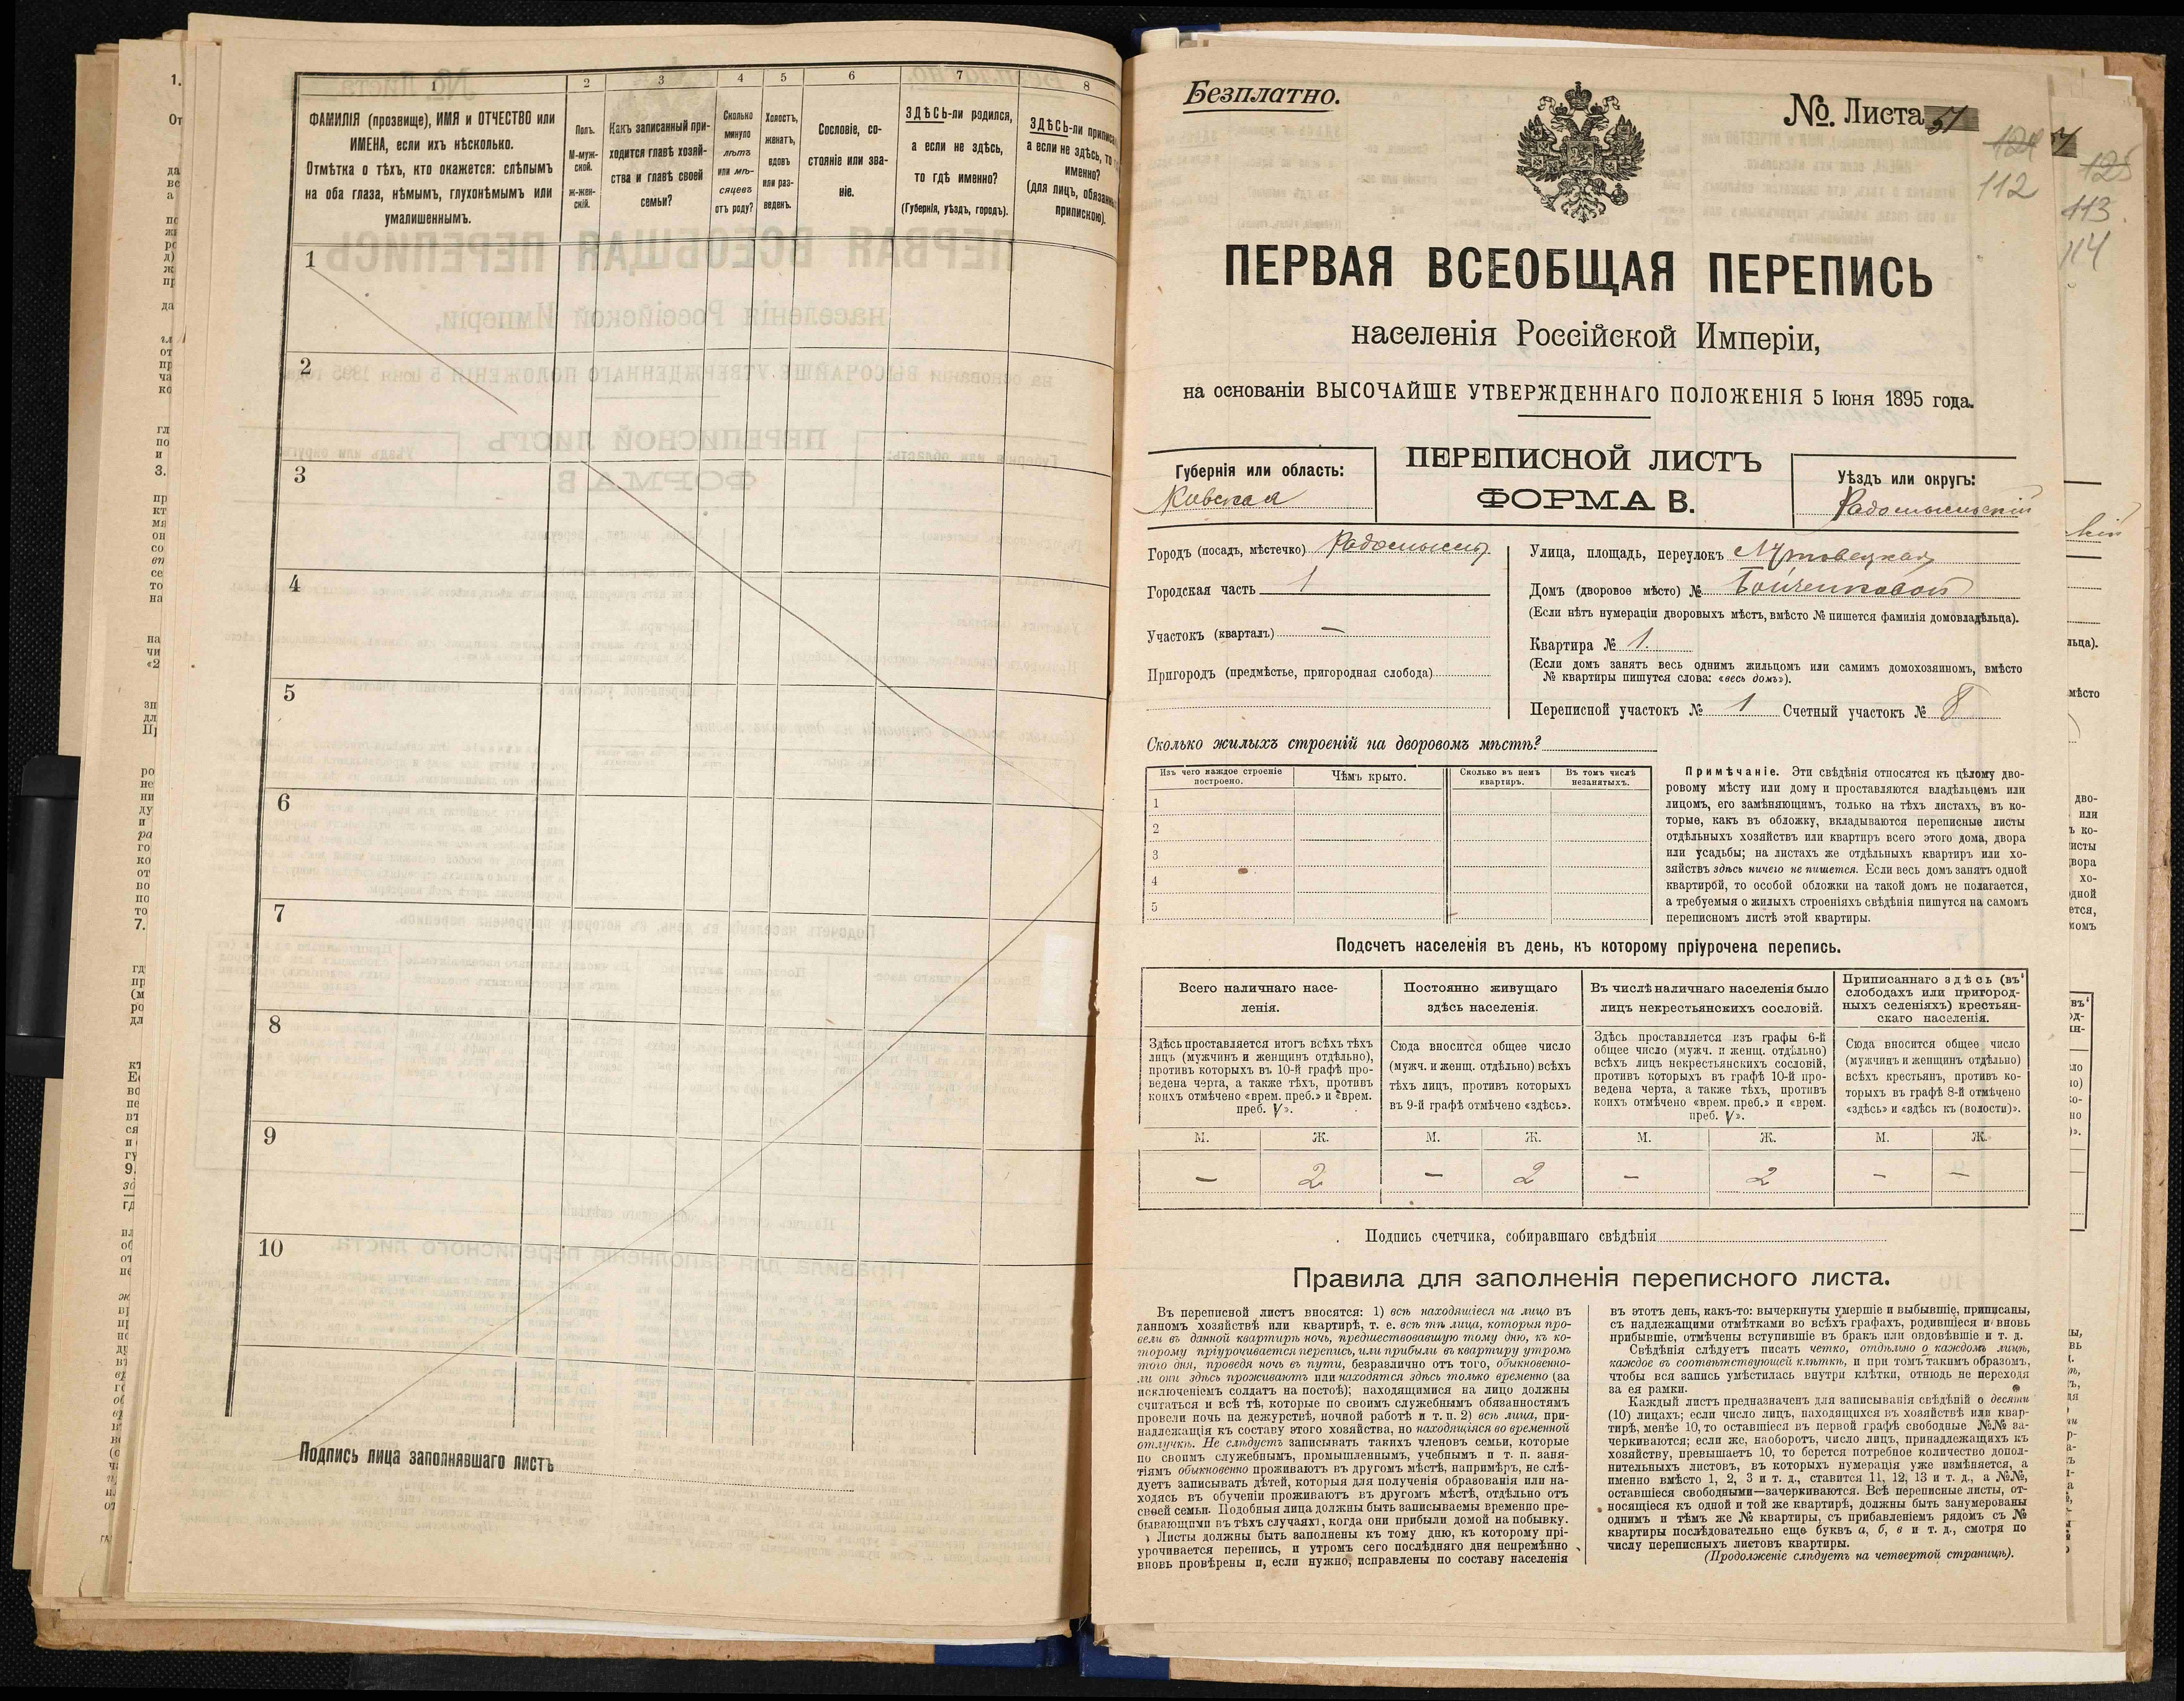 1 2 3 4 5 6 7 8
ФАМИЛІЯ (прозвище), ИМЯ и ОТЧЕСТВО или
ИМЕНА, если ихъ нѣсколько.
Отмѣтка о тѣхъ, кто окажется: слѣпымъ
на оба глаза, нѣмымъ, глухонѣмымъ или
умалишеннымъ.
Полъ.
М-муж-
ской.
ж-жен-
скій.
Какъ записанный при-
ходится главѣ хозяй-
ства и главѣ своей
семьи?
Сколько
минуло
лѣтъ
или мѣ-
сяцевъ
отъ роду?
Холостъ,
женатъ,
вдовъ
или раз-
веденъ.
Сословіе, со-
стояніе или зва-
ніе.
ЗДѢСЬ-ли родился,
а если не здѣсь,
то гдѣ именно?
(Губернія, уѣздъ, городъ).
ЗДѢСЬ-ли
а если не здѣсь,
именно?
(для лицъ,
припискою).
1
2
3
4
5
6
7
8
9
10
Подпись лица заполнявшаго листъ
Безплатно.
№ Листа 51
112
125
113.
114
ПЕРВАЯ ВСЕОБЩАЯ ПЕРЕПИСЬ
населенія Россійской Имперіи,
на основаніи ВЫСОЧАЙШЕ УТВЕРЖДЕННАГО ПОЛОЖЕНІЯ 5 Іюня 1895 года.
Губернія или область:
Кіевская
ПЕРЕПИСНОЙ ЛИСТЪ
ФОРМА В.
Уѣздъ или округъ:
Радомысльскій
Городъ (посадъ, мѣстечко) Радомысль
Городская часть 1
Участокъ (кварталъ) —
Пригородъ (предмѣстье, пригородная слобода)
Улица, площадь, переулокъ
Домъ (дворовое мѣсто) № Бойченковой
(Если нѣтъ нумераціи дворовыхъ мѣстъ, вмѣсто № пишется фамилія домовладѣльца).
Квартира № 1.
(Если домъ занятъ весь однимъ жильцомъ или самимъ домохозяиномъ, вмѣсто
№ квартиры пишутся слова: «весь домъ»).
Переписной участокъ № 1 Счетный участокъ № 8
Сколько жилыхъ строеній на дворовомъ мѣстѣ?
Изъ чего каждое строеніе
построено.
Чѣмъ крыто.
Сколько въ немъ
квартиръ.
Въ томъ числѣ
незанятыхъ.
1
2
3
4
5
Примѣчаніе. Эти свѣдѣнія относятся къ цѣлому дво-
ровому мѣсту или дому и проставляются владѣльцемъ или
лицомъ, его замѣняющимъ, только на тѣхъ листахъ, въ ко-
торые, какъ въ обложку, вкладываются переписные листы
отдѣльныхъ хозяйствъ или квартиръ всего этого дома, двора
или усадьбы; на листахъ же отдѣльныхъ квартиръ или хо-
зяйствъ здѣсь ничего не пишется. Если весь домъ занятъ одной
квартирой, то особой обложки на такой домъ не полагается,
а требуемыя о жилыхъ строеніяхъ свѣдѣнія пишутся на самомъ
переписномъ листѣ этой квартиры.
Подсчетъ населенія въ день, къ которому пріурочена перепись.
Всего наличнаго насе-
ленія.
Здѣсь проставляется итогъ всѣхъ тѣхъ
лицъ (мужчинъ и женщинъ отдѣльно),
противъ которыхъ въ 10-й графѣ про-
ведена черта, а также тѣхъ, противъ
коихъ отмѣчено «врем. преб.» и «врем.
преб. V».
Постоянно живущаго
здѣсь населенія.
Сюда вносится общее число
(мужч. и женщ. отдѣльно) всѣхъ
тѣхъ лицъ, противъ которыхъ
въ 9-й графѣ отмѣчено «здѣсь».
Въ числѣ наличнаго населенія было
лицъ некрестьянскихъ сословій.
Здѣсь проставляется изъ графы 6-й
общее число (мужч. и женщ. отдѣльно)
всѣхъ лицъ некрестьянскихъ сословій,
противъ которыхъ въ графѣ 10-й про-
ведена черта, а также тѣхъ, противъ
коихъ отмѣчено «врем. преб.» и «врем.
преб. V».
Приписаннаго здѣсь (въ
слободахъ или пригород-
ныхъ селеніяхъ) крестьян-
скаго населенія.
Сюда вносится общее число
(мужчинъ и женщинъ отдѣльно)
всѣхъ крестьянъ, противъ ко-
торыхъ въ графѣ 8-й отмѣчено
«здѣсь» и «здѣсь къ (волости)».
М. Ж. М. Ж. М. Ж. М. Ж.
— 2 — 2 — 2 — —
Подпись счетчика, собиравшаго свѣдѣнія
Правила для заполненія переписного листа.
Въ переписной листъ вносятся: 1) всѣ находящіеся на лицо въ
данномъ хозяйствѣ или квартирѣ, т. е. всѣ тѣ лица, которыя про-
вели въ данной квартирѣ ночь, предшествовавшую тому дню, къ ко-
торому пріурочивается перепись, или прибыли въ квартиру утромъ
того дня, проведя ночь въ пути, безразлично отъ того, обыкновенно-
ли они здѣсь проживаютъ или находятся здѣсь только временно (за
исключеніемъ солдатъ на постоѣ); находящимися на лицо должны
считаться и всѣ тѣ, которые по своимъ служебнымъ обязанностямъ
провели ночь на дежурствѣ, ночной работѣ и т. п. 2) всѣ лица, при-
надлежащія къ составу этого хозяйства, но находящіяся во временной
отлучкѣ. Не слѣдуетъ записывать такихъ членовъ семьи, которые
по своимъ служебнымъ, промышленнымъ, учебнымъ и т. п. заня-
тіямъ обыкновенно проживаютъ въ другомъ мѣстѣ, напримѣръ, не слѣ-
дуетъ записывать дѣтей, которыя для полученія образованія или на-
ходясь въ обученіи проживаютъ въ другомъ мѣстѣ, отдѣльно отъ
своей семьи. Подобныя лица должны быть записываемы временно пре-
бывающими въ тѣхъ случаяхъ, когда они прибыли домой на побывку.
Листы должны быть заполнены къ тому дню, къ которому прі-
урочивается перепись, и утромъ сего послѣдняго дня непремѣнно
вновь провѣрены и, если нужно, исправлены по составу населенія
въ этотъ день, какъ-то: вычеркнуты умершіе и выбывшіе, приписаны,
съ надлежащими отмѣтками во всѣхъ графахъ, родившіеся и вновь
прибывшіе, отмѣчены вступившіе въ бракъ или овдовѣвшіе и т. д.
Свѣдѣнія слѣдуетъ писать четко, отдѣльно о каждомъ лицѣ,
каждое въ соотвѣтствующей клѣткѣ, и при томъ такимъ образомъ,
чтобы вся запись умѣстилась внутри клѣтки, отнюдь не переходя
за ея рамки.
Каждый листъ предназначенъ для записыванія свѣдѣній о десяти
(10) лицахъ; если число лицъ, находящихся въ хозяйствѣ или квар-
тирѣ, менѣе 10, то оставшіеся въ первой графѣ свободные №№ за-
черкиваются; если же, наоборотъ, число лицъ, принадлежащихъ къ
хозяйству, превышаетъ 10, то берется потребное количество допол-
нительныхъ листовъ, въ которыхъ нумерація уже измѣняется, а
именно вмѣсто 1, 2, 3 и т. д., ставится 11, 12, 13 и т. д., а №№,
оставшіеся свободными—зачеркиваются. Всѣ переписные листы, от-
носящіеся къ одной и той же квартирѣ, должны быть занумерованы
однимъ и тѣмъ же № квартиры, съ прибавленіемъ рядомъ съ №
квартиры послѣдовательно еще буквъ а, б, в и т. д., смотря по
числу переписныхъ листовъ квартиры.
(Продолженіе слѣдуетъ на четвертой страницѣ).